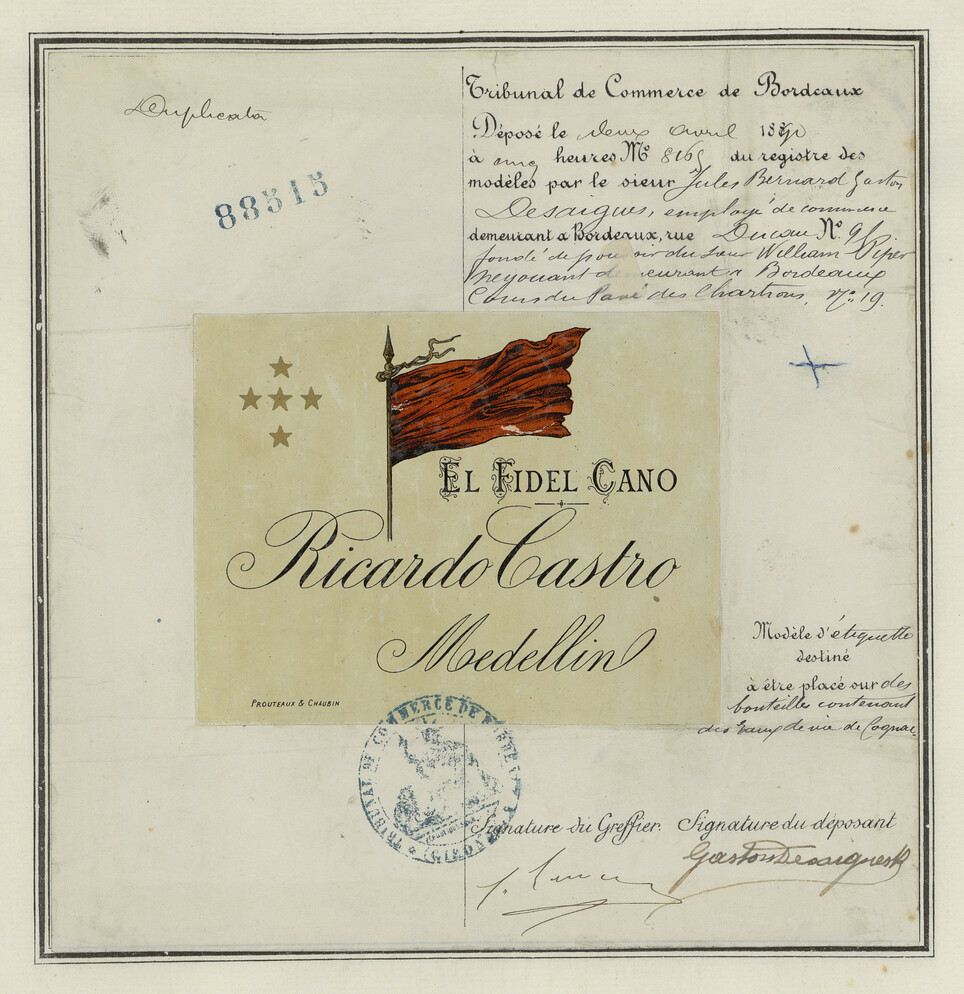 Duplicata
88515
Tribunal de Commerce de Bordeaux
Déposé le deux avril 18
à cinq heures No 8165 du registre des
modèles par le sieur Jules Bernard Gaston
Desaigues, employé de commerce
demeurant a Bordeaux, rue Ducau No 91
fondé de pouvoir du sieur William Piper
négociant demeurant à Bordeaux
Cours du Pavé des Chartrons, No 19.
EL FIDEL CANO
Ricardo Castro
Medellin
PROUTEAUX & CHAUBIN
Modèle d'étiquette
destiné
à être placé sur des
bouteilles contenant
des Eaux de vie de Cognac
TRIBUNAL DE COMMERCE DE BORDEAUX
(GIRONDE)
Signature du Greffier. Signature du déposant
Gaston Desaigues